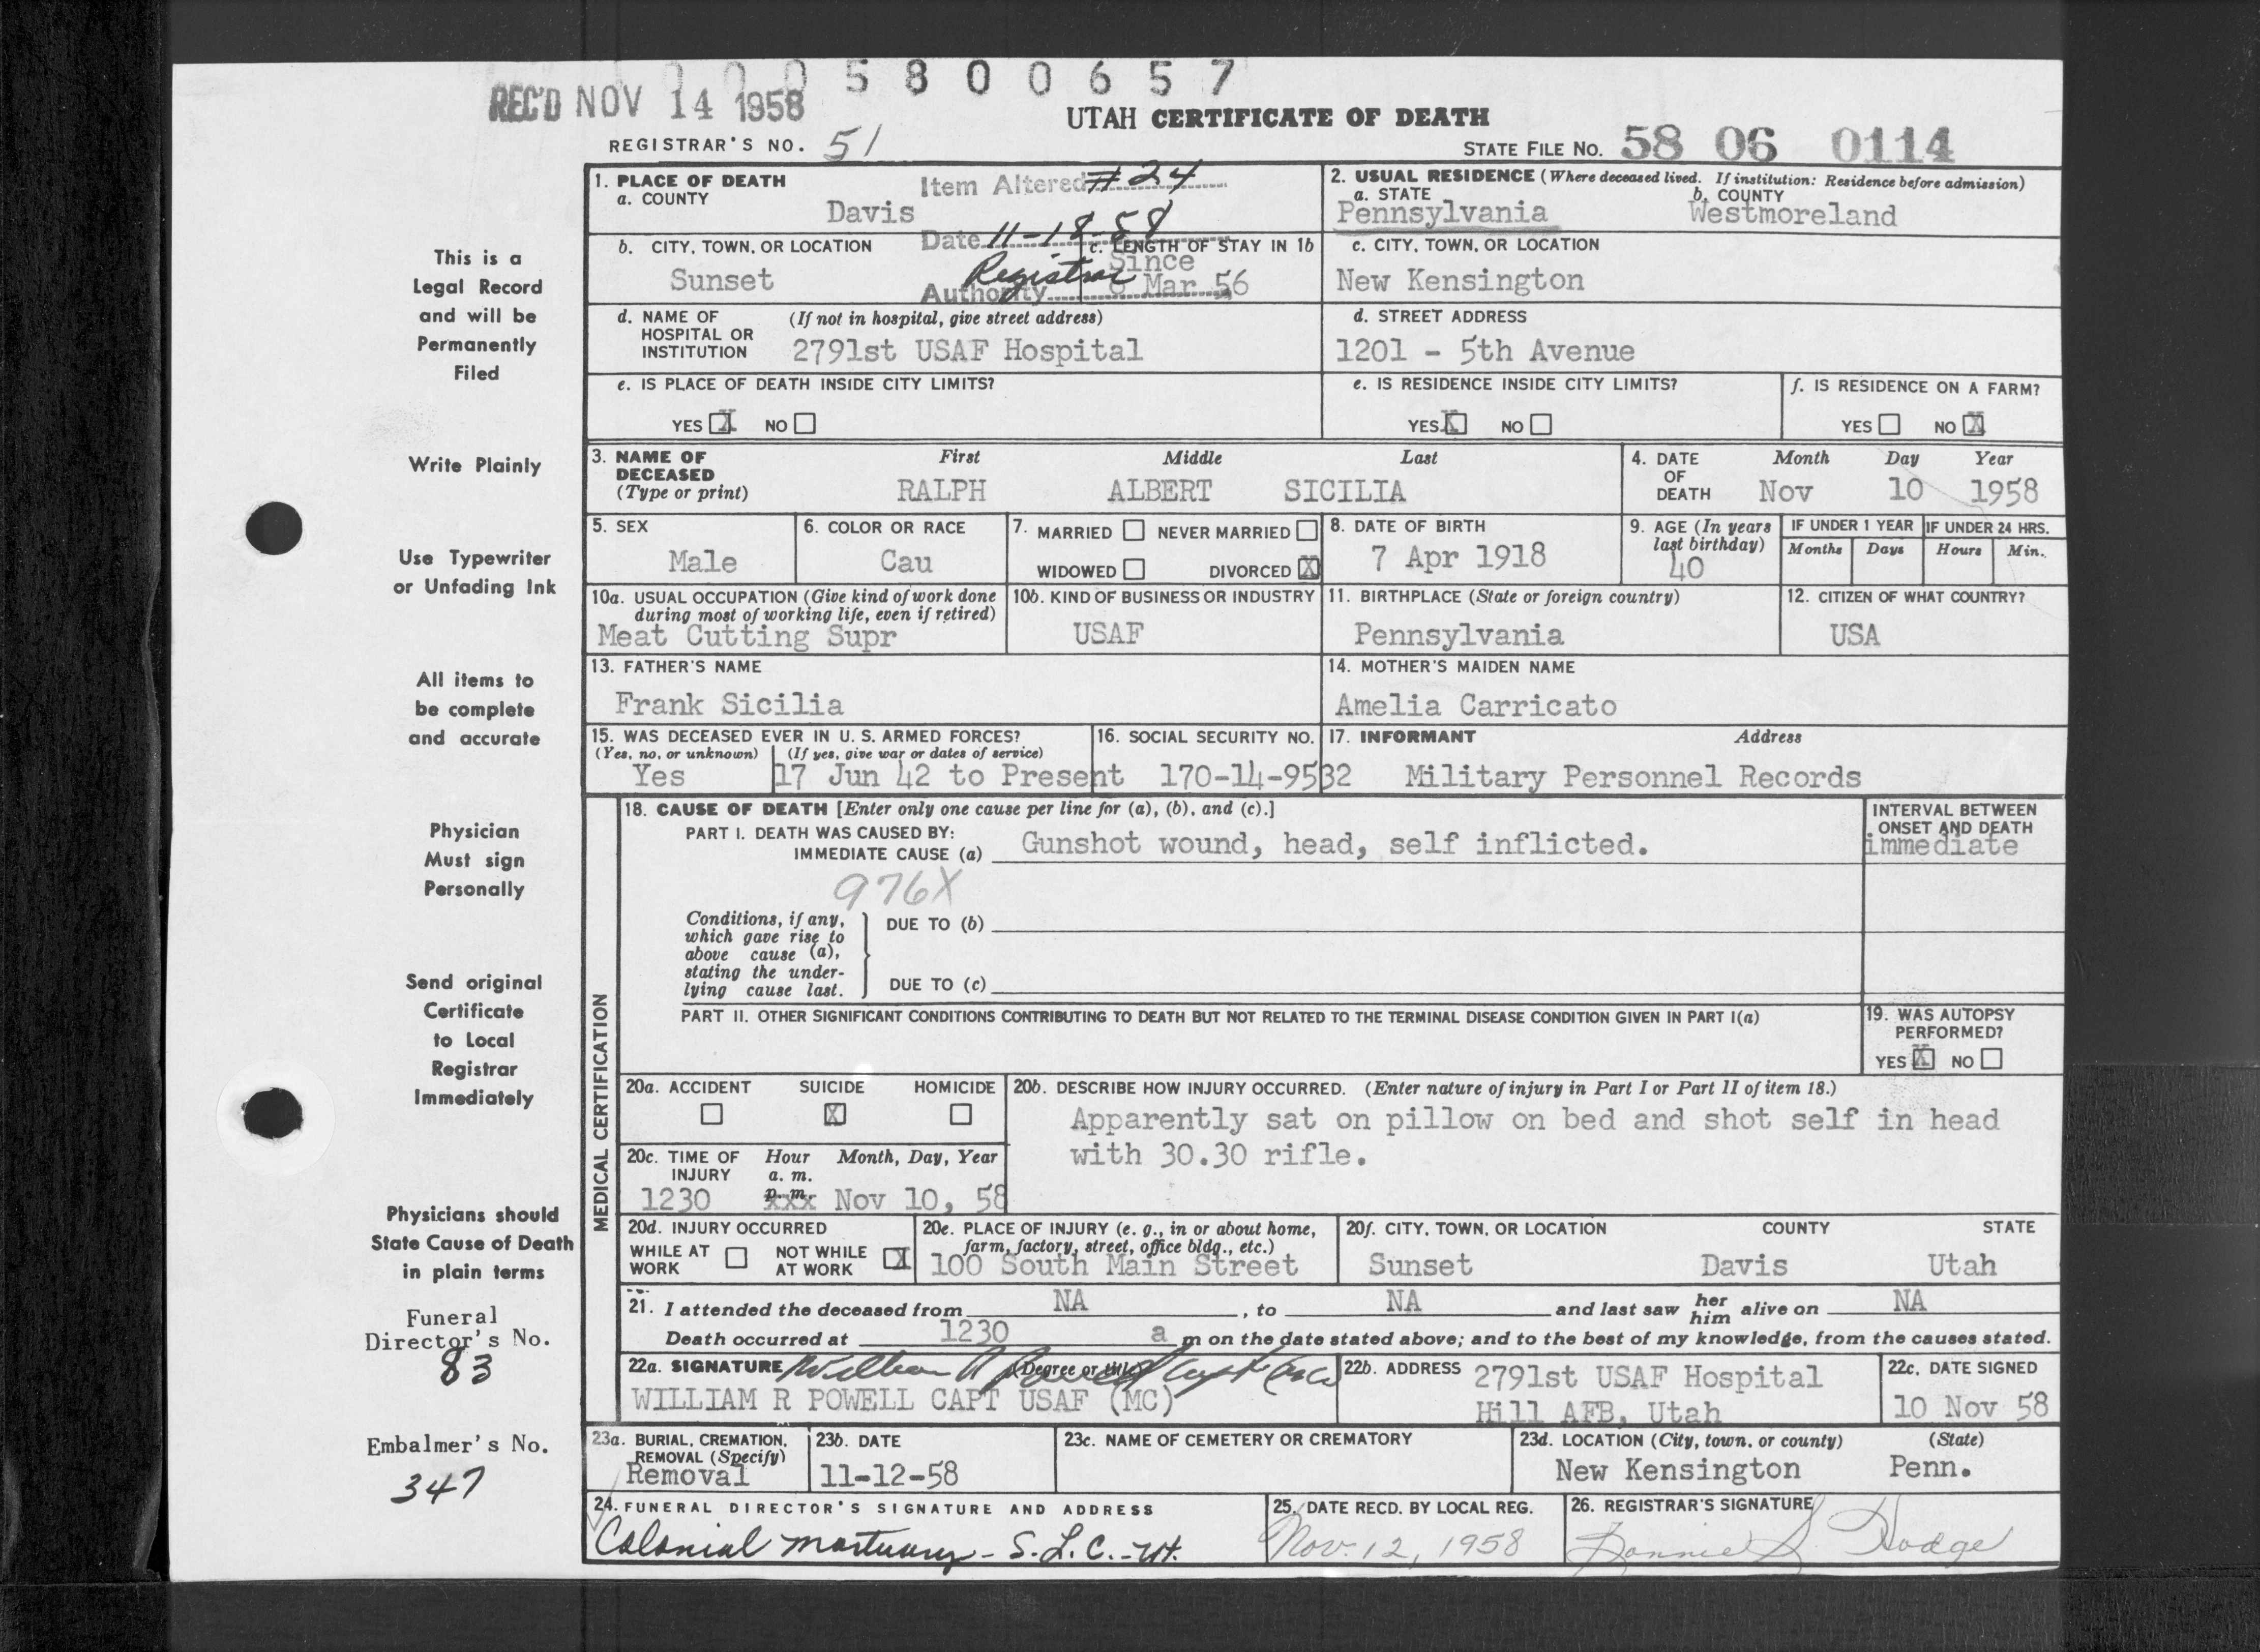 0005800657
REC'D NOV 14 1958
UTAH CERTIFICATE OF DEATH
REGISTRAR'S NO. 51
STATE FILE NO. 58 06 0114
This is a
Legal Record
and will be
Permanently
Filed
Write Plainly
Use Typewriter
or Unfading Ink
All items to
be complete
and accurate
Physician
Must sign
Personally
Send original
Certificate
to Local
Registrar
Immediately
Physicians should
State Cause of Death
in plain terms
Funeral
Director's No.
83
Embalmer's No.
347
1. PLACE OF DEATH
a. COUNTY
Davis
Item Altered #24
Date 11-18-58
Authority Registrar
2. USUAL RESIDENCE (Where deceased lived. If institution: Residence before admission)
a. STATE
Pennsylvania
b. COUNTY
Westmoreland
b. CITY, TOWN, OR LOCATION
Sunset
c. LENGTH OF STAY IN 1b
Since
Mar 56
c. CITY, TOWN, OR LOCATION
New Kensington
d. NAME OF HOSPITAL OR INSTITUTION
(If not in hospital, give street address)
2791st USAF Hospital
d. STREET ADDRESS
1201 - 5th Avenue
e. IS PLACE OF DEATH INSIDE CITY LIMITS?
YES X NO
e. IS RESIDENCE INSIDE CITY LIMITS?
YES X NO
f. IS RESIDENCE ON A FARM?
YES NO X
3. NAME OF DECEASED
(Type or print)
First Middle Last
RALPH ALBERT SICILIA
4. DATE OF DEATH
Month Day Year
Nov 10 1958
5. SEX
Male
6. COLOR OR RACE
Cau
7. MARRIED NEVER MARRIED
WIDOWED DIVORCED X
8. DATE OF BIRTH
7 Apr 1918
9. AGE (In years last birthday)
40
IF UNDER 1 YEAR
Months Days
IF UNDER 24 HRS.
Hours Min.
10a. USUAL OCCUPATION (Give kind of work done during most of working life, even if retired)
Meat Cutting Supr
10b. KIND OF BUSINESS OR INDUSTRY
USAF
11. BIRTHPLACE (State or foreign country)
Pennsylvania
12. CITIZEN OF WHAT COUNTRY?
USA
13. FATHER'S NAME
Frank Sicilia
14. MOTHER'S MAIDEN NAME
Amelia Carricato
15. WAS DECEASED EVER IN U. S. ARMED FORCES?
(Yes, no, or unknown) (If yes, give war or dates of service)
Yes 17 Jun 42 to Present
16. SOCIAL SECURITY NO.
170-14-9532
17. INFORMANT Address
Military Personnel Records
MEDICAL CERTIFICATION
18. CAUSE OF DEATH [Enter only one cause per line for (a), (b), and (c).]
PART I. DEATH WAS CAUSED BY:
IMMEDIATE CAUSE (a) Gunshot wound, head, self inflicted.
INTERVAL BETWEEN ONSET AND DEATH
immediate
976X
Conditions, if any, which gave rise to above cause (a), stating the underlying cause last.
DUE TO (b)
DUE TO (c)
PART II. OTHER SIGNIFICANT CONDITIONS CONTRIBUTING TO DEATH BUT NOT RELATED TO THE TERMINAL DISEASE CONDITION GIVEN IN PART I(a)
19. WAS AUTOPSY PERFORMED?
YES X NO
20a. ACCIDENT SUICIDE HOMICIDE
X
20b. DESCRIBE HOW INJURY OCCURRED. (Enter nature of injury in Part I or Part II of item 18.)
Apparently sat on pillow on bed and shot self in head
with 30.30 rifle.
20c. TIME OF INJURY
Hour Month, Day, Year
a. m.
p. m.
1230 xxx Nov 10, 58
20d. INJURY OCCURRED
WHILE AT WORK NOT WHILE AT WORK X
20e. PLACE OF INJURY (e. g., in or about home, farm, factory, street, office bldg., etc.)
100 South Main Street
20f. CITY, TOWN, OR LOCATION COUNTY STATE
Sunset Davis Utah
21. I attended the deceased from NA, to NA and last saw her him alive on NA
Death occurred at 1230 a m on the date stated above; and to the best of my knowledge, from the causes stated.
22a. SIGNATURE (Degree or title)
William R Powell Capt (MC)
WILLIAM R POWELL CAPT USAF (MC)
22b. ADDRESS
2791st USAF Hospital
Hill AFB, Utah
22c. DATE SIGNED
10 Nov 58
23a. BURIAL, CREMATION, REMOVAL (Specify)
Removal
23b. DATE
11-12-58
23c. NAME OF CEMETERY OR CREMATORY
23d. LOCATION (City, town, or county) (State)
New Kensington Penn.
24. FUNERAL DIRECTOR'S SIGNATURE AND ADDRESS
Colonial Mortuary - S.L.C.-Ut.
25. DATE RECD. BY LOCAL REG.
Nov. 12, 1958
26. REGISTRAR'S SIGNATURE
Bonnie S Hodge